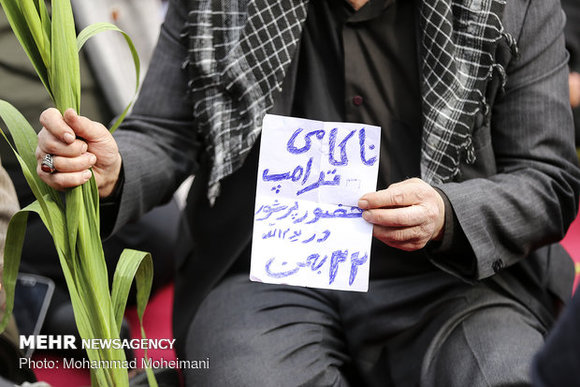 ناکامی
ترامپ
حضور پرشور
در یوم الله
۲۲ بهمن
MEHR NEWSAGENCY
Photo: Mohammad Moheimani